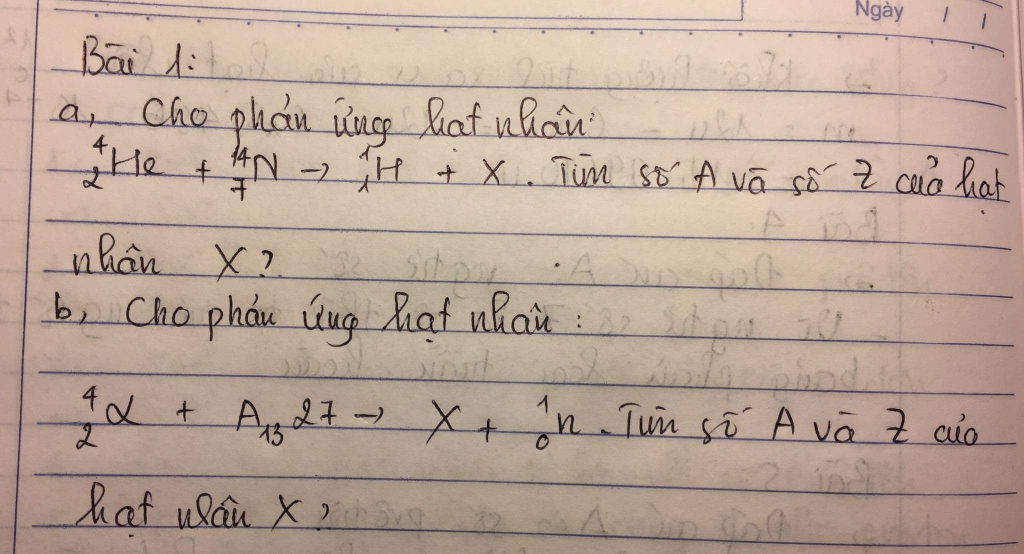 Ngày / /
Bài 1:
a, Cho phản ứng hạt nhân:
⁴₂He + ¹⁴₇N → ¹₁H + X. Tìm số A và số Z của hạt
nhân X?
b, Cho phản ứng hạt nhân:
⁴₂α + A₁₃27 → X + ¹₀n. Tìm số A và Z của
hạt nhân X?